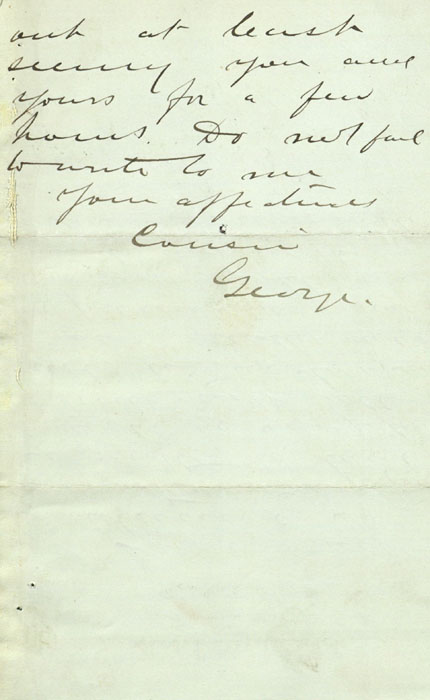 out at least
seeing you and
yours for a few
hours. Do not fail
to write to me
Your affectionate
Cousin
George.